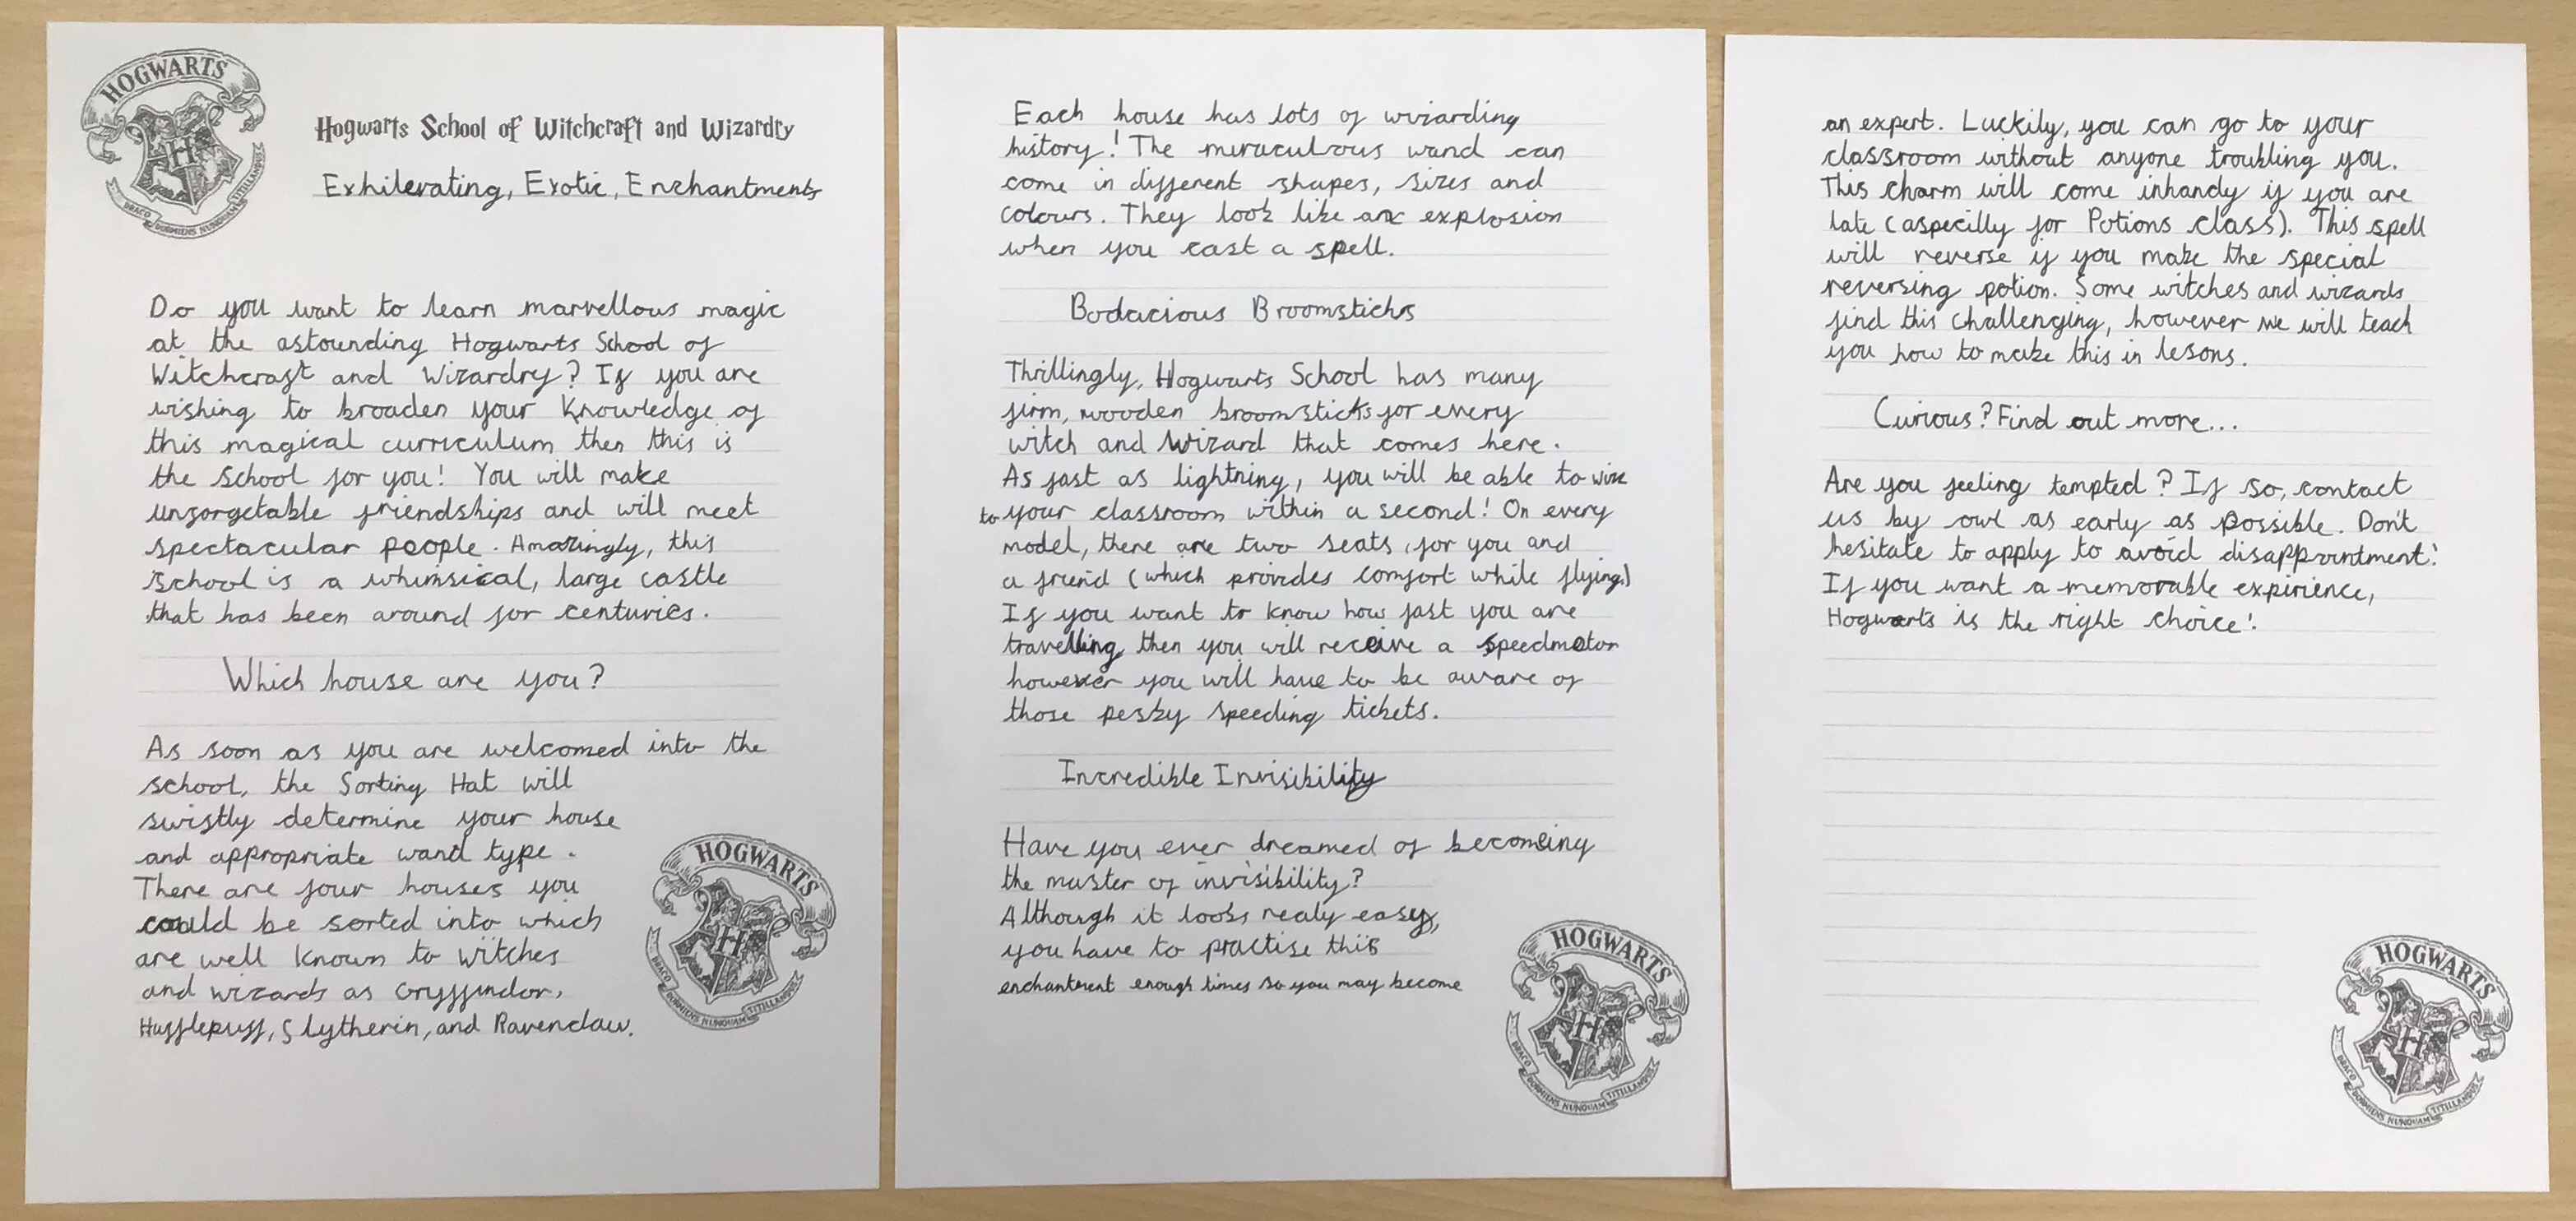 HOGWARTS
DRACO DORMIENS NUNQUAM TITILLANDUS
Hogwarts School of Witchcraft and Wizardry
Exhilerating, Exotic, Enchantments
Do you want to learn marvellous magic
at the astounding Hogwarts School of
Witchcraft and Wizardry? If you are
wishing to broaden your knowledge of
this magical curriculum then this is
the school for you! You will make
unforgetable friendships and will meet
spectacular people. Amazingly, this
school is a whimsical, large castle
that has been around for centuries.
Which house are you?
As soon as you are welcomed into the
school, the Sorting Hat will
swiftly determine your house
and appropriate wand type.
There are four houses you
could be sorted into which
are well known to witches
and wizards as Gryffindor,
Hufflepuff, Slytherin, and Ravenclaw.
HOGWARTS
DRACO DORMIENS NUNQUAM TITILLANDUS
Each house has lots of wizarding
history! The miraculous wand can
come in different shapes, sizes and
colours. They look like an explosion
when you cast a spell.
Bodacious Broomsticks
Thrillingly, Hogwarts School has many
firm, wooden broomsticks for every
witch and wizard that comes here.
As fast as lightning, you will be able to
to your classroom within a second! On every
model, there are two seats for you and
a friend (which provides comfort while flying.)
If you want to know how fast you are
travelling then you will receive a speedmotor
however you will have to be aware of
those pesky speeding tickets.
Incredible Invisibility
Have you ever dreamed of becoming
the master of invisibility?
Although it looks realy easy,
you have to practise this
enchantment enough times so you may become
HOGWARTS
DRACO DORMIENS NUNQUAM TITILLANDUS
an expert. Luckily, you can go to your
classroom without anyone troubling you.
This charm will come inhandy if you are
late (aspecilly for Potions class). This spell
will reverse if you make the special
reversing potion. Some witches and wizards
find this challenging, however we will teach
you how to make this in lesons.
Curious? Find out more...
Are you feeling tempted? If so, contact
us by owl as early as possible. Don't
hesitate to apply to avoid disappointment!
If you want a memorable expirience,
Hogwarts is the right choice!
HOGWARTS
DRACO DORMIENS NUNQUAM TITILLANDUS